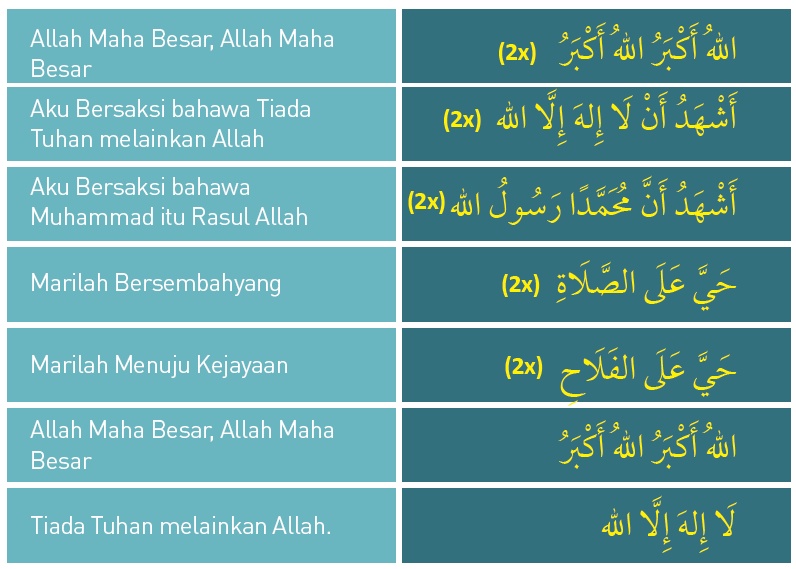 Allah Maha Besar, Allah Maha
Besar
اللهُ أَكْبَرُ اللهُ أَكْبَرُ (2x)
Aku Bersaksi bahawa Tiada
Tuhan melainkan Allah
أَشْهَدُ أَنْ لَا إِلهَ إِلَّا الله (2x)
Aku Bersaksi bahawa
Muhammad itu Rasul Allah
أَشْهَدُ أَنَّ مُحَمَّدًا رَسُولُ الله (2x)
Marilah Bersembahyang
حَيَّ عَلَى الصَّلَاةِ (2x)
Marilah Menuju Kejayaan
حَيَّ عَلَى الفَلَاحِ (2x)
Allah Maha Besar, Allah Maha
Besar
اللهُ أَكْبَرُ اللهُ أَكْبَرُ
Tiada Tuhan melainkan Allah.
لَا إِلهَ إِلَّا الله